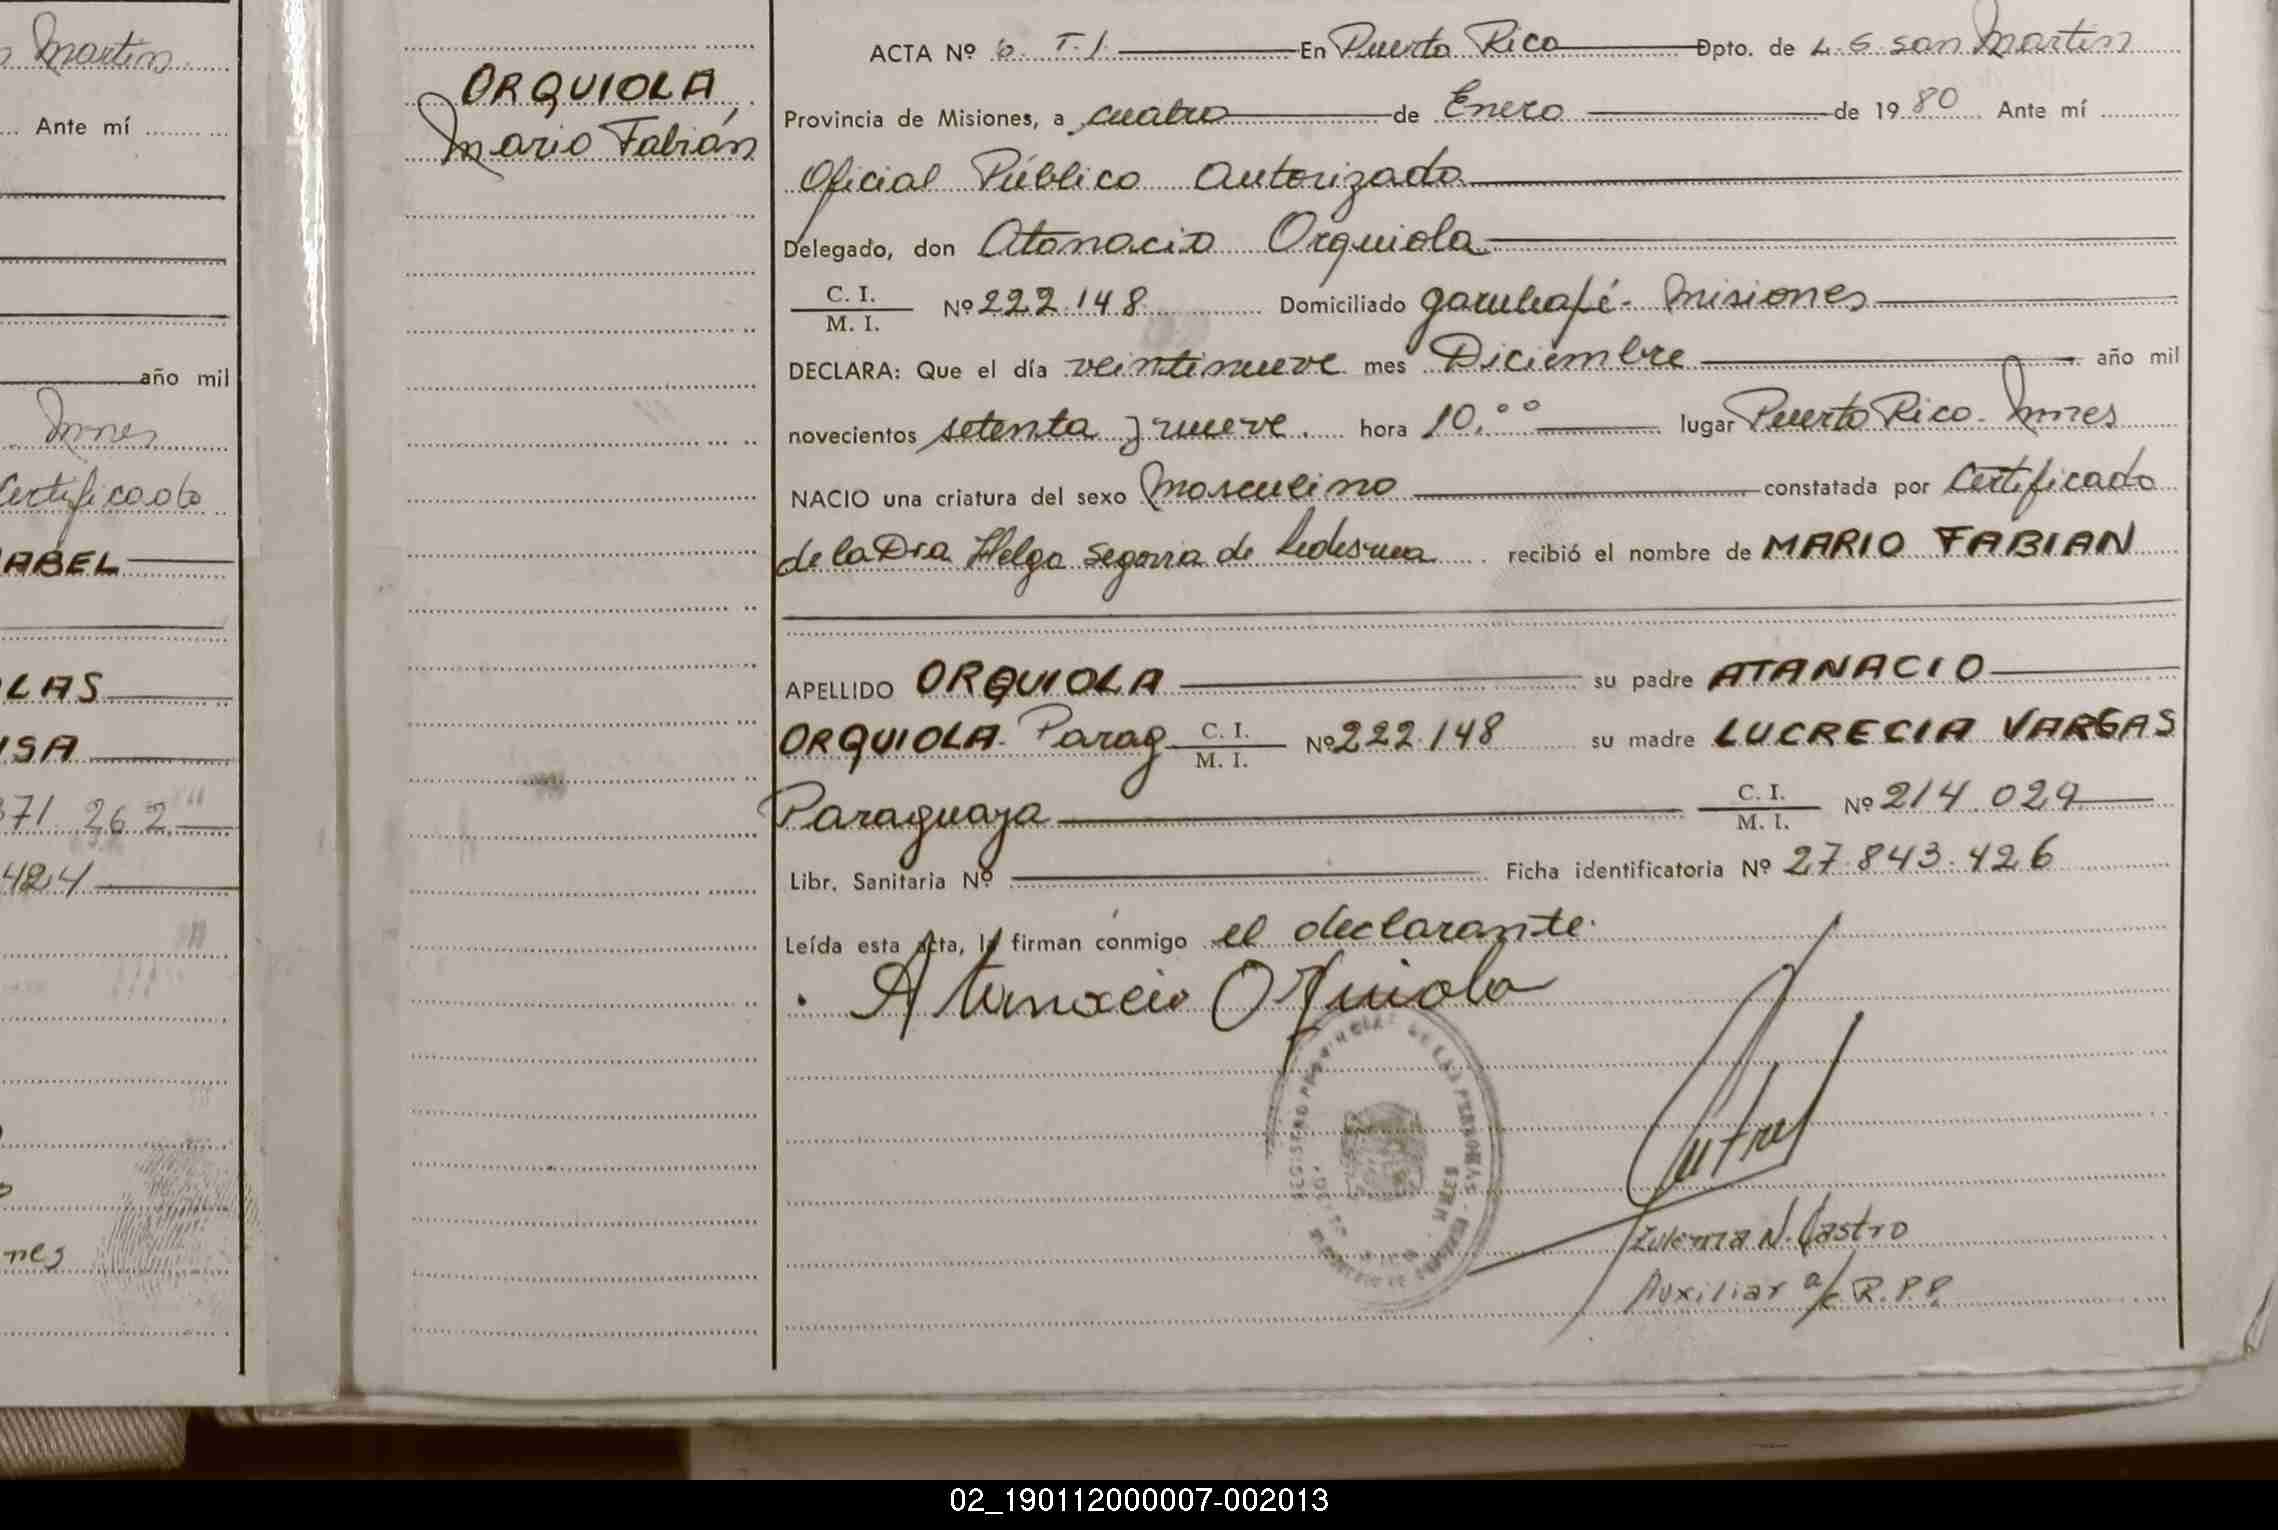 Martin
Ante mí
año mil
Mnes
Certificado
ABEL
LAS
ISA
371 262
424
nes
ORQUIOLA,
Mario Fabián
ACTA Nº 6. T. I. En Puerto Rico Dpto. de L. G. San Martin
Provincia de Misiones, a cuatro de Enero de 1980 Ante mí
Oficial Público Autorizado
Delegado, don Atanacio Orquiola
C. I.
M. I. Nº 222.148 Domiciliado Garuhapé - Misiones
DECLARA: Que el día veintinueve mes Diciembre año mil
novecientos setenta y nueve. hora 10.°° lugar Puerto Rico - Mnes
NACIO una criatura del sexo Masculino constatada por Certificado
de la Dra Helga Segovia de Ledesma recibió el nombre de MARIO FABIAN
APELLIDO ORQUIOLA su padre ATANACIO
ORQUIOLA. Parag C. I.
M. I. Nº 222.148 su madre LUCRECIA VARGAS
Paraguaya C. I.
M. I. Nº 214.029
Libr. Sanitaria Nº Ficha identificatoria Nº 27.843.426
Leída esta acta, la firman conmigo el declarante.
Atanacio Orquiola
REGISTRO PROVINCIAL DE LAS PERSONAS
MNES
Zulema N. Castro
Auxiliar a/c R.P.P.
02_190112000007-002013